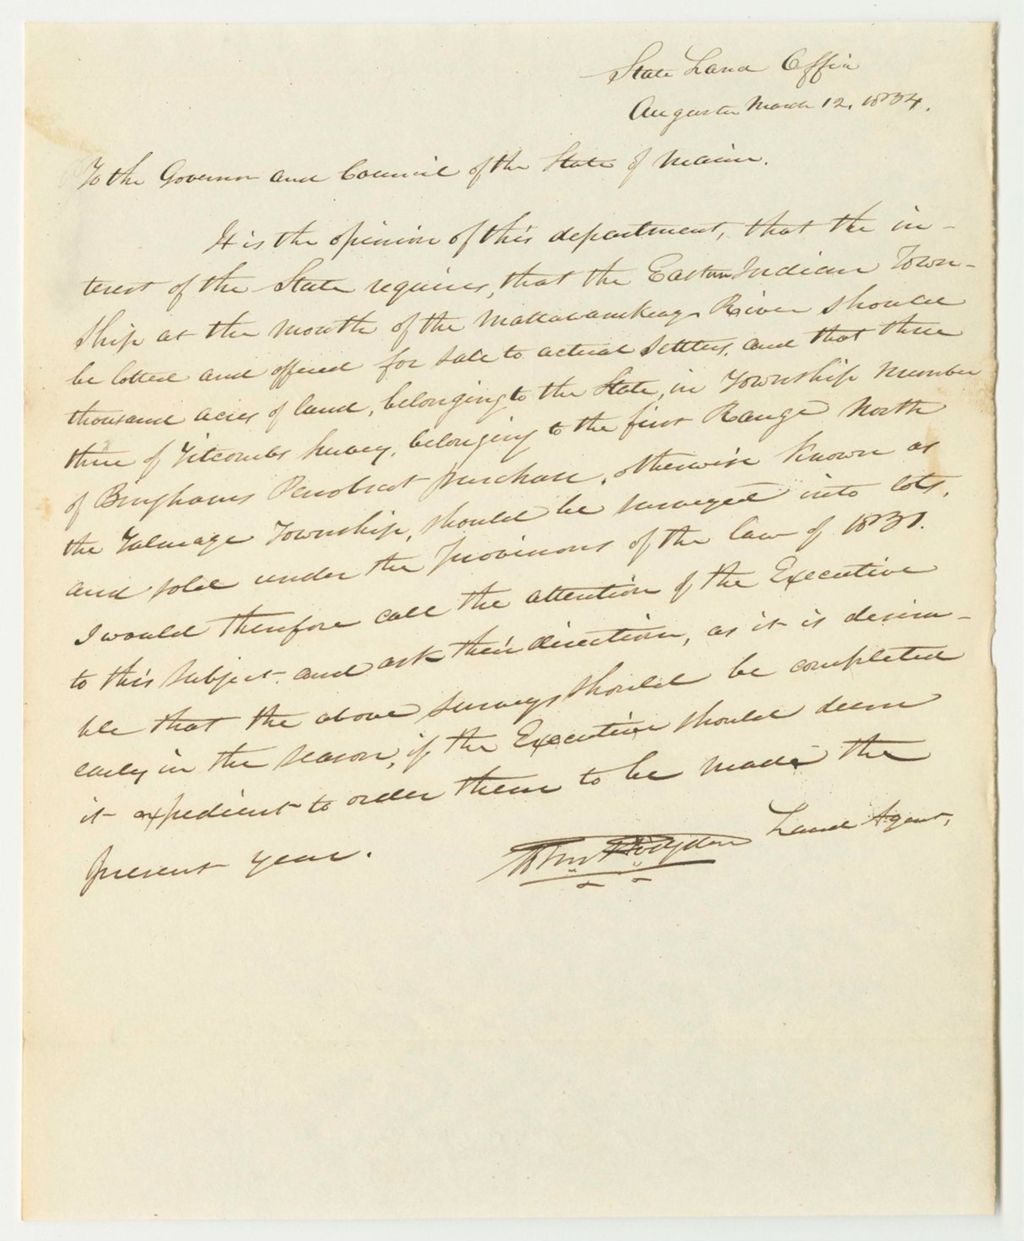 State Land Office
Augusta March 12, 1834.
To the Governor and Council of the State of Maine.
It is the opinion of this department, that the in-
terest of the State requires, that the Eastern Indian Town-
ship at the mouth of the Mattawamkeag River should
be lotted and offered for sale to actual settlers, and that three
thousand acres of land, belonging to the State, in Township Number
three of Titcombs survey, belonging to the first Range North
of Binghams Penobscot purchase, otherwise known as
the Talmage Township, should be surveyed into lots,
and sold under the provisions of the law of 1831.
I would therefore call the attention of the Executive
to this subject and ask their direction, as it is desira-
ble that the above surveys should be completed
early in the season, if the Executive should deem
it expedient to order them to be made the
present year.
John Hodgdon Land Agent.